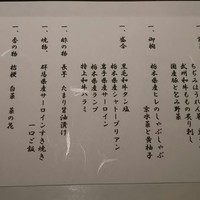 ちぢみほうれん草
武州和牛もも炙り刺し
国産豚と包み野菜
一、御椀
栃木県産ヒレのしゃぶしゃぶ
京水菜と黄柚子
一、盛合
黒毛和牛タン塩
栃木県産シャトーブリアン
岩手県産サーロイン
栃木県産ランプ
特上和牛ハラミ
一、酢の物
長芋 たまり醤油漬け
一、焼物
群馬県産サーロインすき焼き
一口ご飯
一、香の物
桔梗 白菜 菜の花